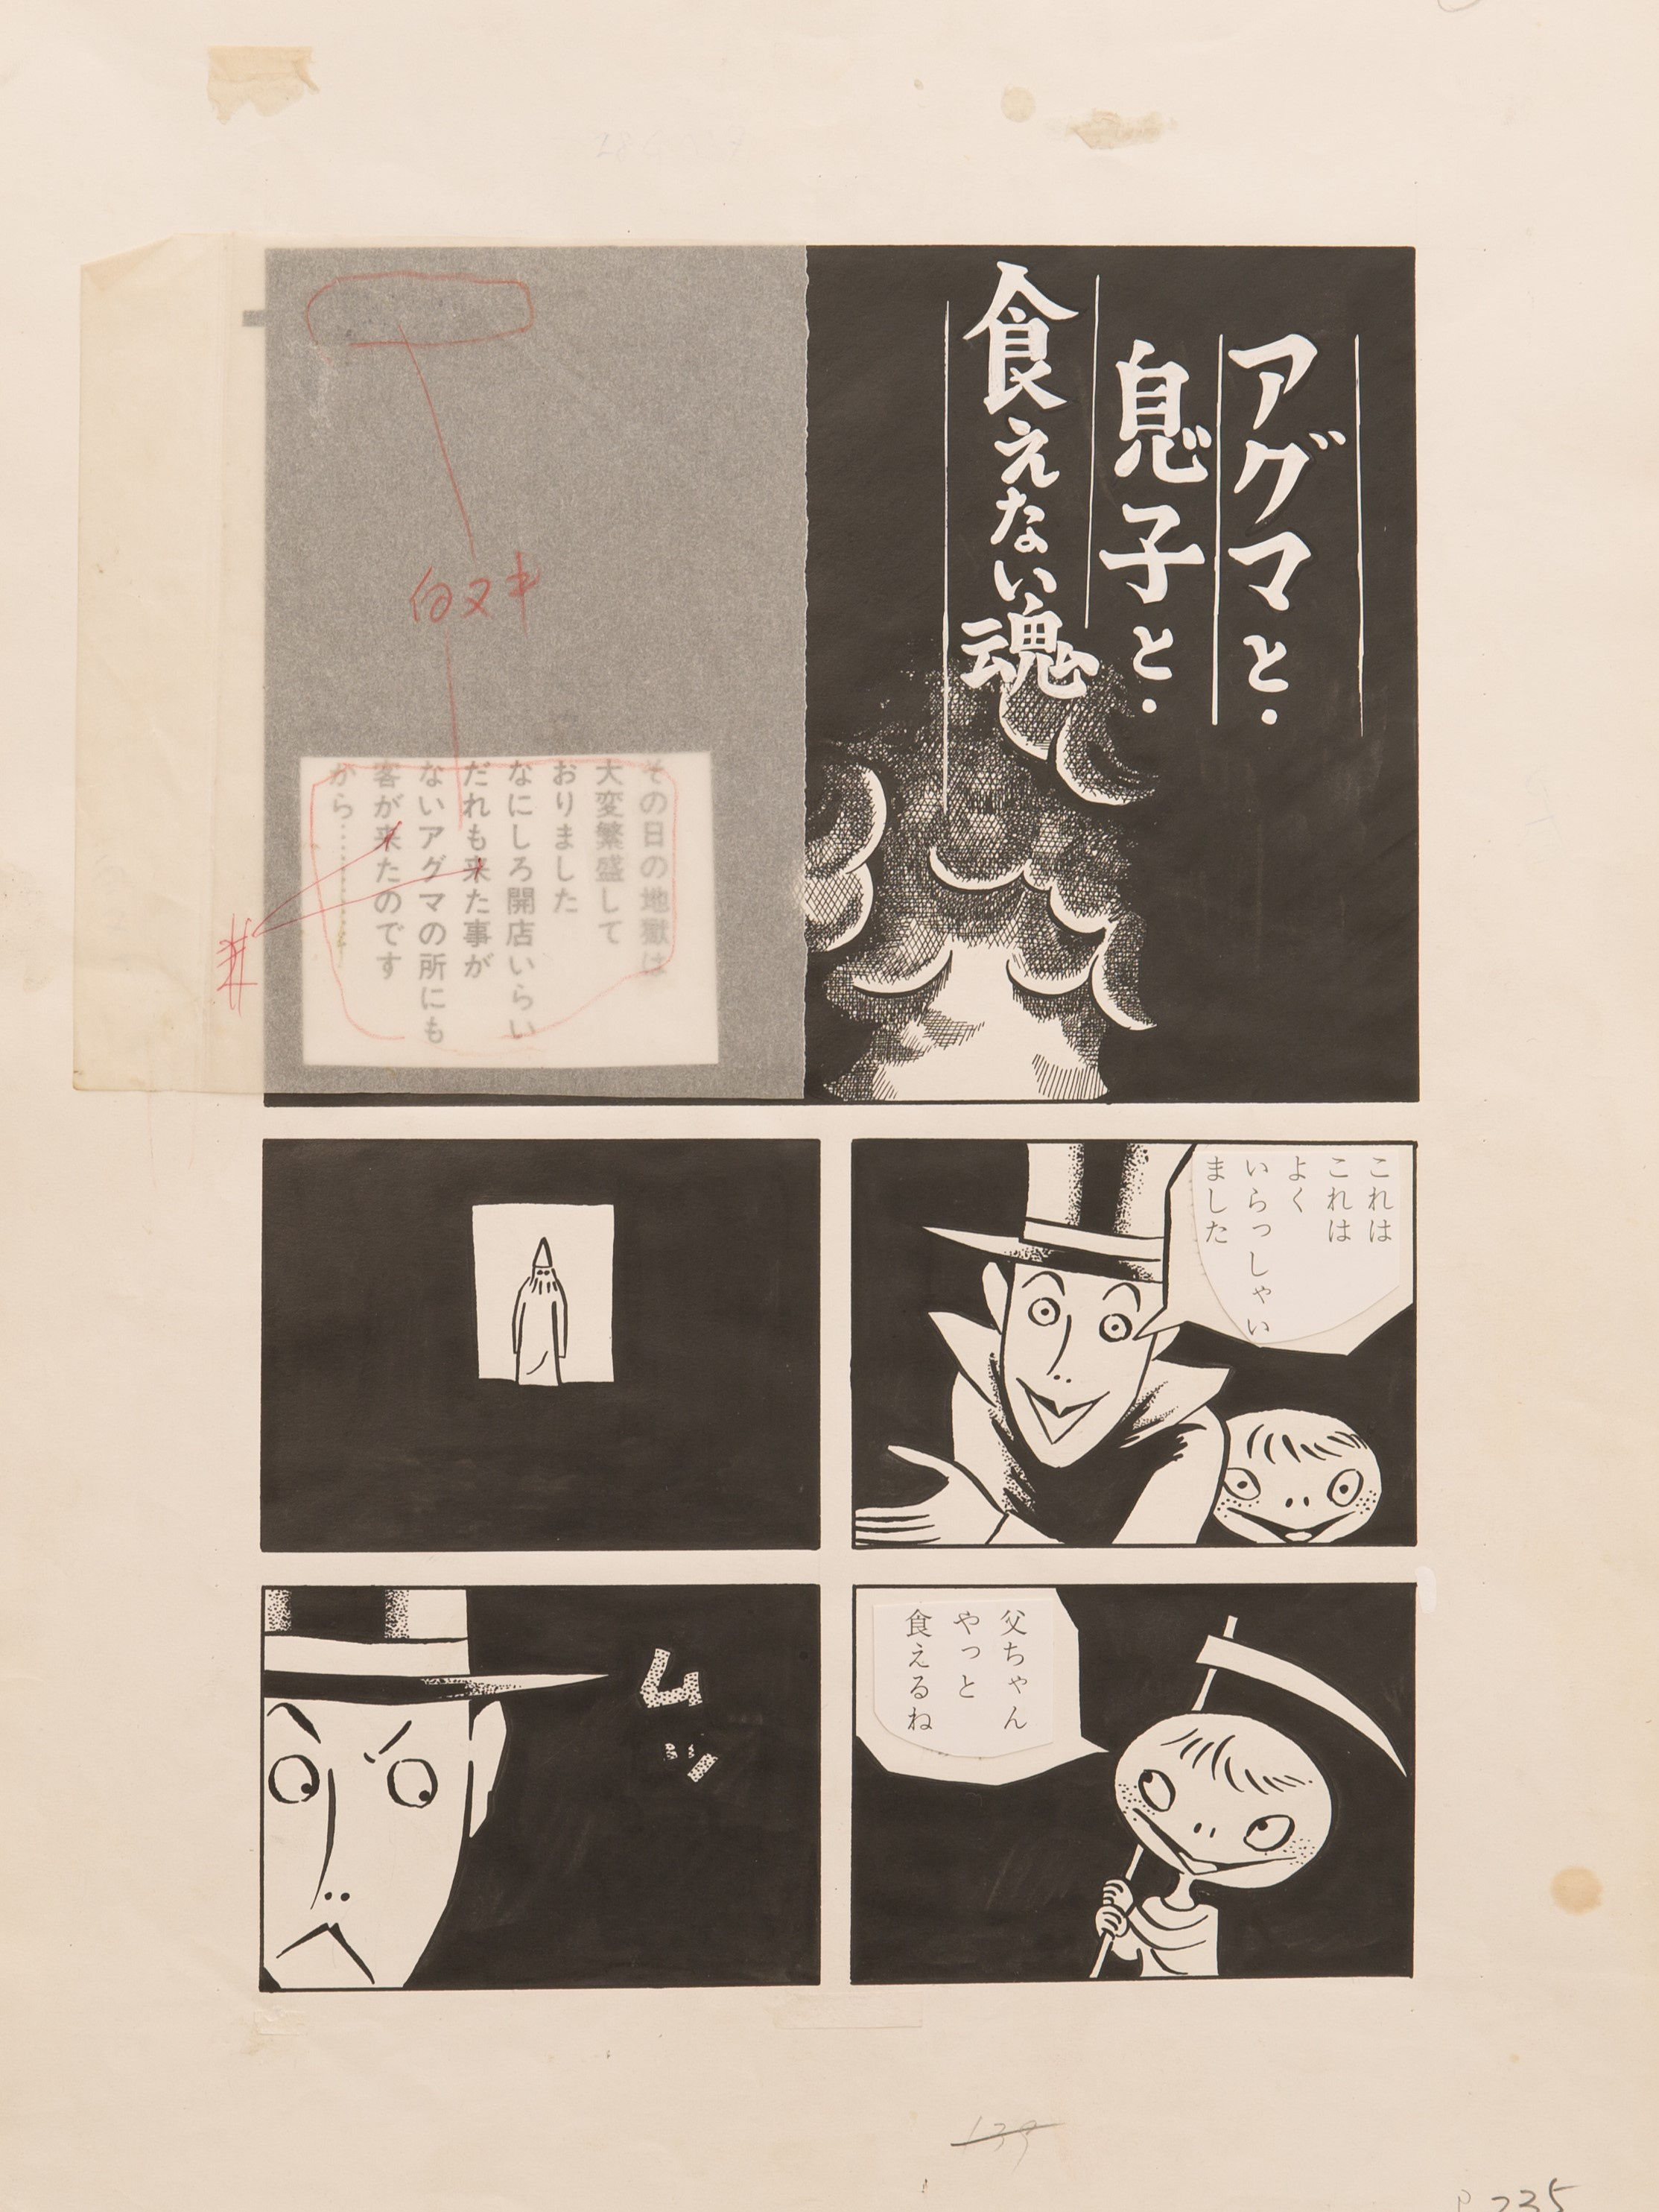 アグマと・
息子と・
食えない魂
白ヌキ
その日の地獄は
大変繁盛して
おりました
なにしろ開店いらい
だれも来た事が
ないアグマの所にも
客が来たのです
から・・・・・・・・・
これは
これは
よく
いらっしゃい
ました
父ちゃん
やっと
食えるね
ムッ
139
P235